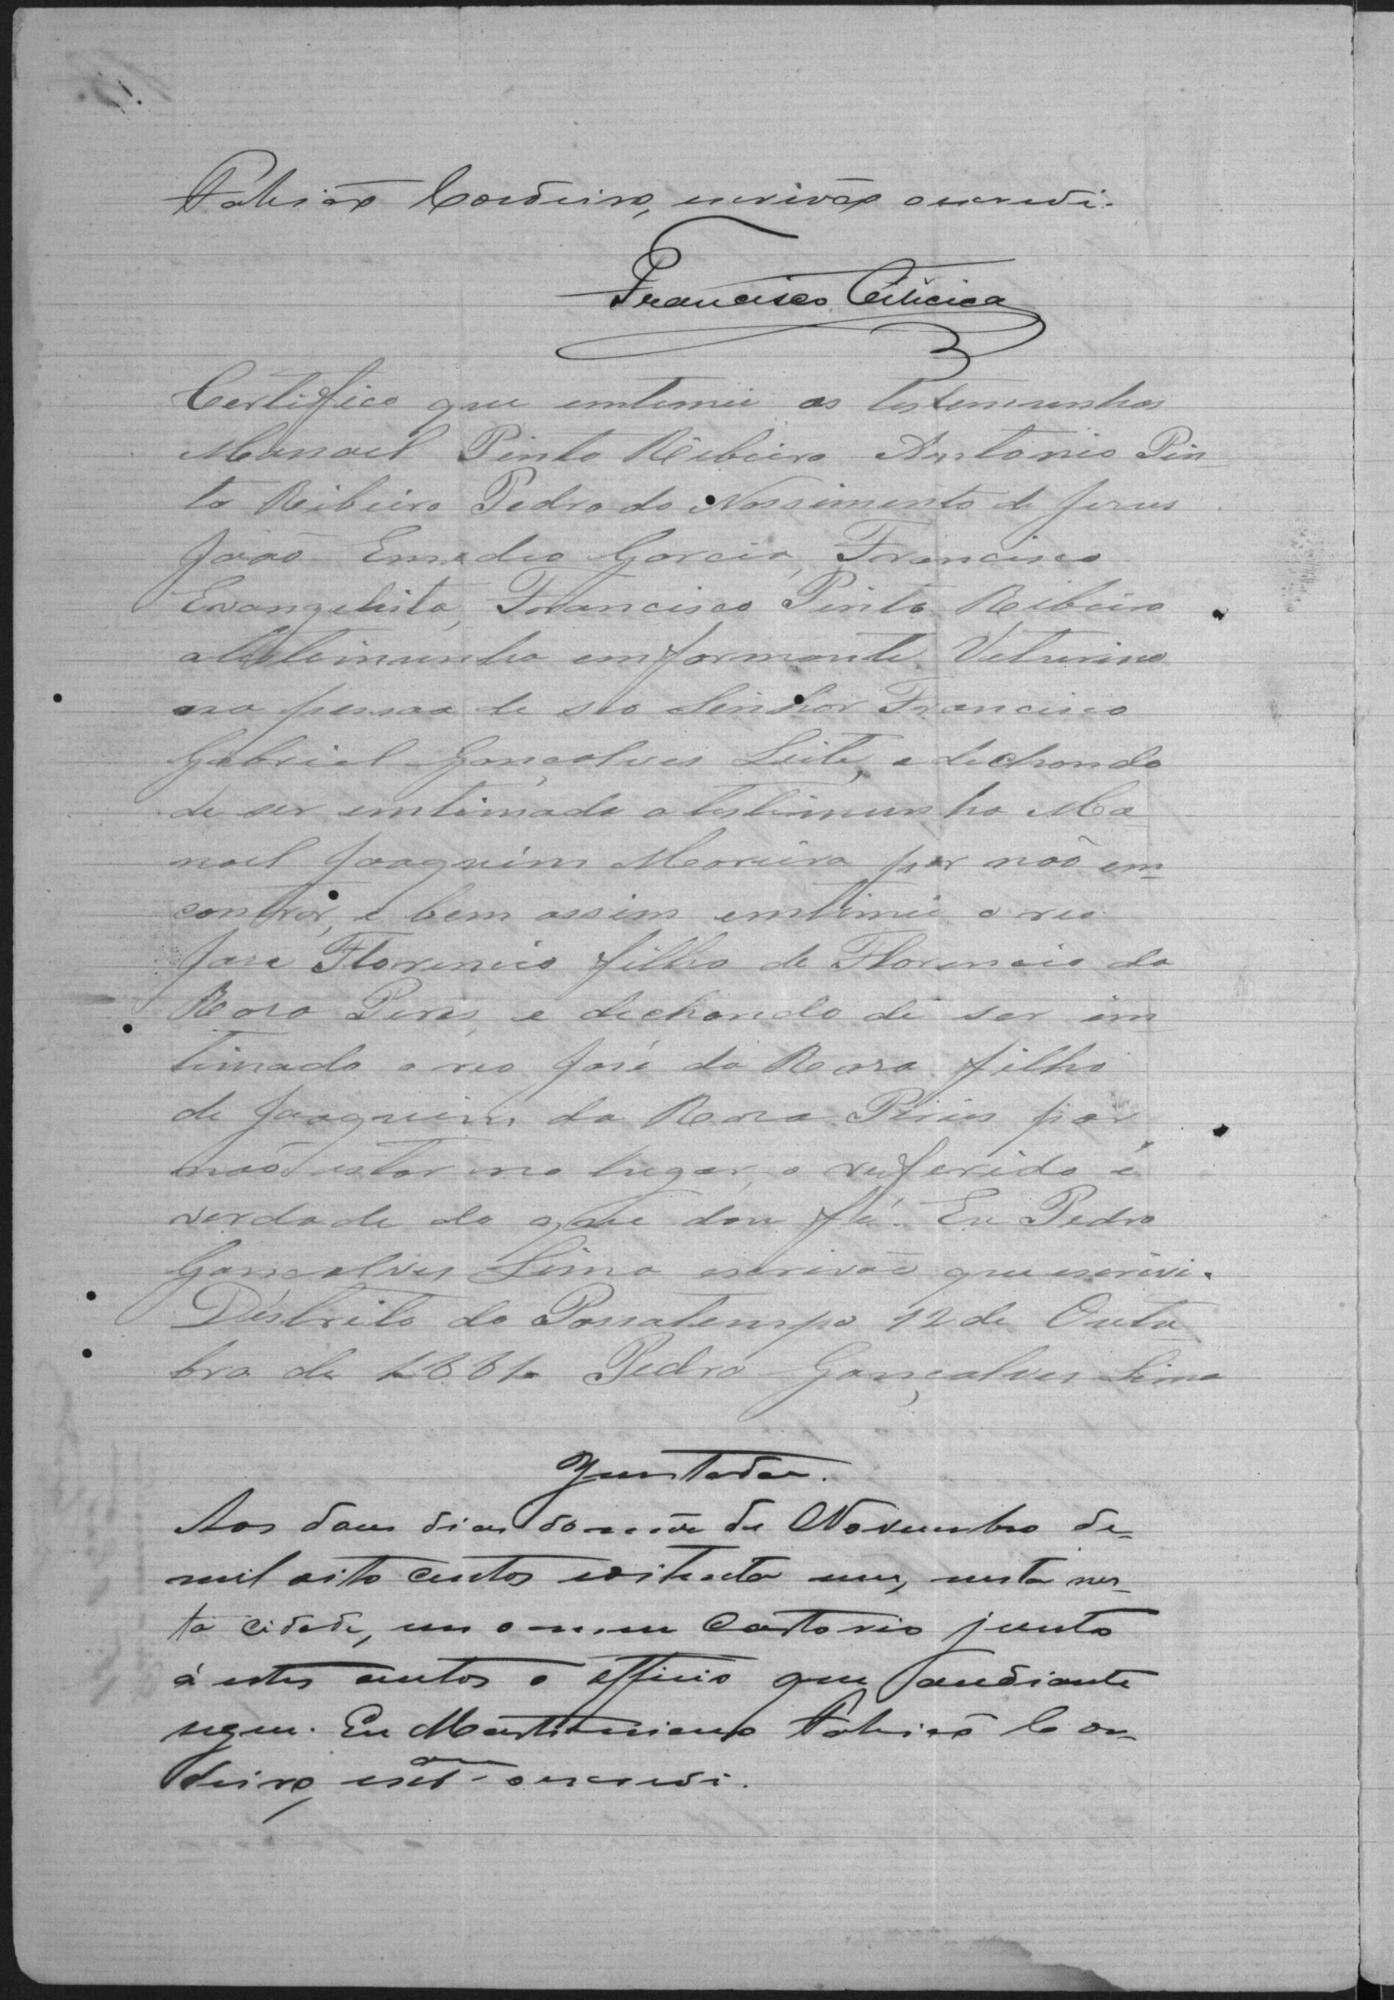 Fabião Cordeiro, escrivão o escrevi.
Francisco
Certifico que emtimei as testemunhas
Manoel Pinto Ribeiro Antonio Pin
to Ribeiro Pedro do Nassimento de Jezus
João Emedio Garcia, Francisco
Evangelista, Francisco Pinto Ribeiro
a testemunha emformante Veturino
na pesoa de seo Senhor Francisco
Gabriel Gonçalves Leite, e dechando
de ser emtimado a testimunha Ma
noel Joaquim Moreira por não em
contrar, e bem assim emtimei o reo
Jose Florencio filho de Florencio da
Roza Peres, e dechando de ser im
timado o reo José da Roza filho
de Joaquim da Roza Peres por
não estar no lugar, o referido é
verdade do que dou fé. Eu Pedro
Gonçalves Lima escrivão que escrevi.
Destrito do Passatempo 12 de Outu
bro de 1881. Pedro Gonçalves Lima
Juntada.
Aos dous dias do mez de Novembro de
mil oito centos e oitenta um, nesta
cidade, em o meu Cartorio junto
á estes autos o officio que adiante
segue. Eu Martiniano Fabião Cor
deiro, escrivão o escrevi.